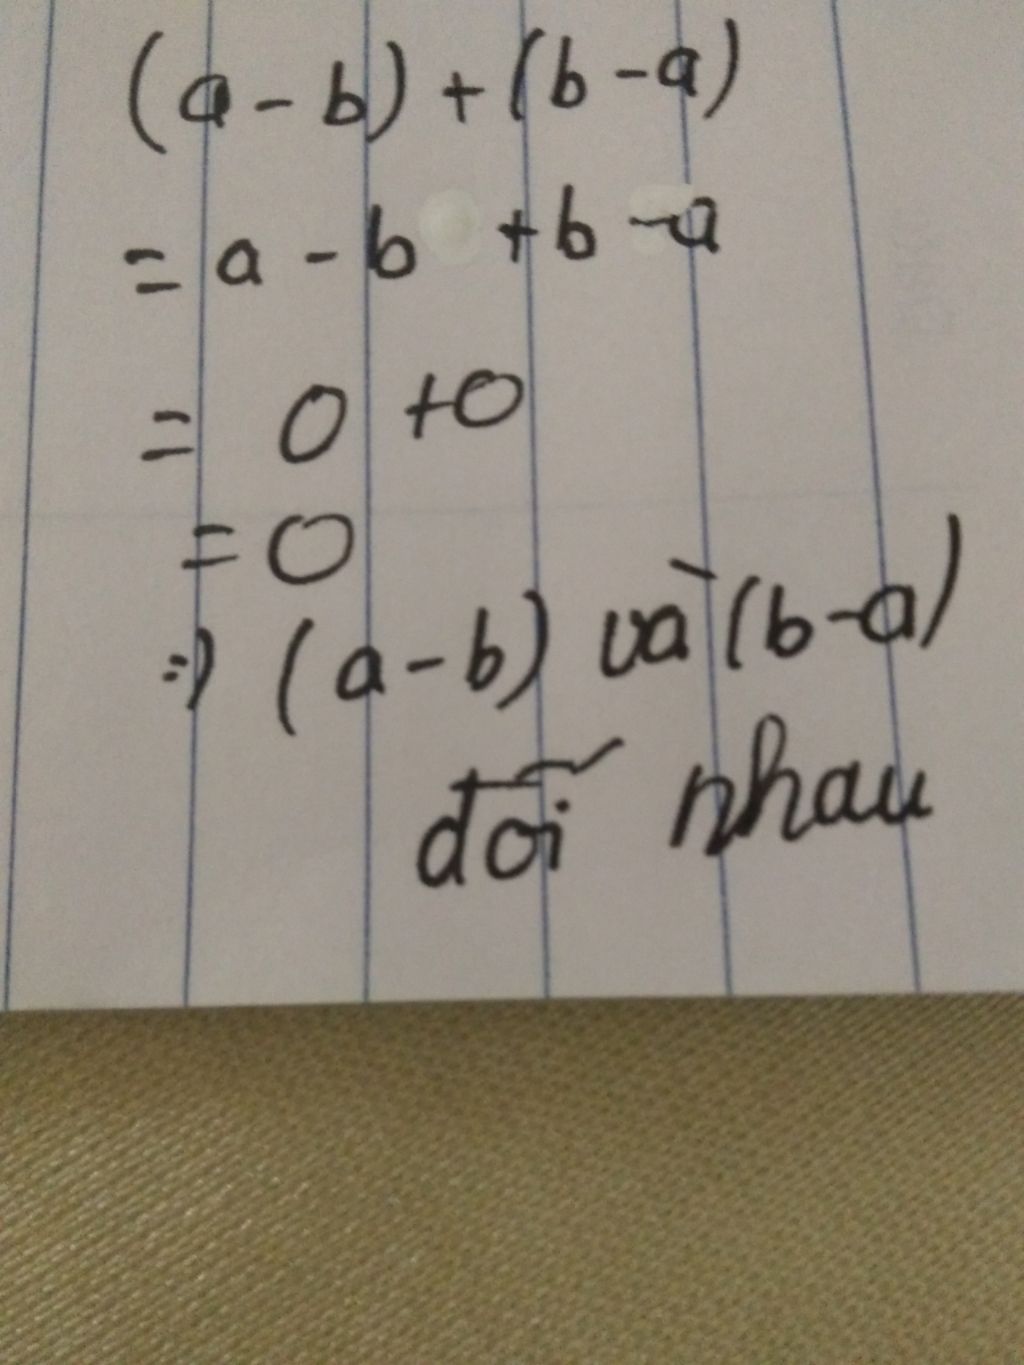 (a - b) + (b - a)
= a - b + b - a
= 0 + 0
= 0
=) (a - b) và (b - a)
đối nhau